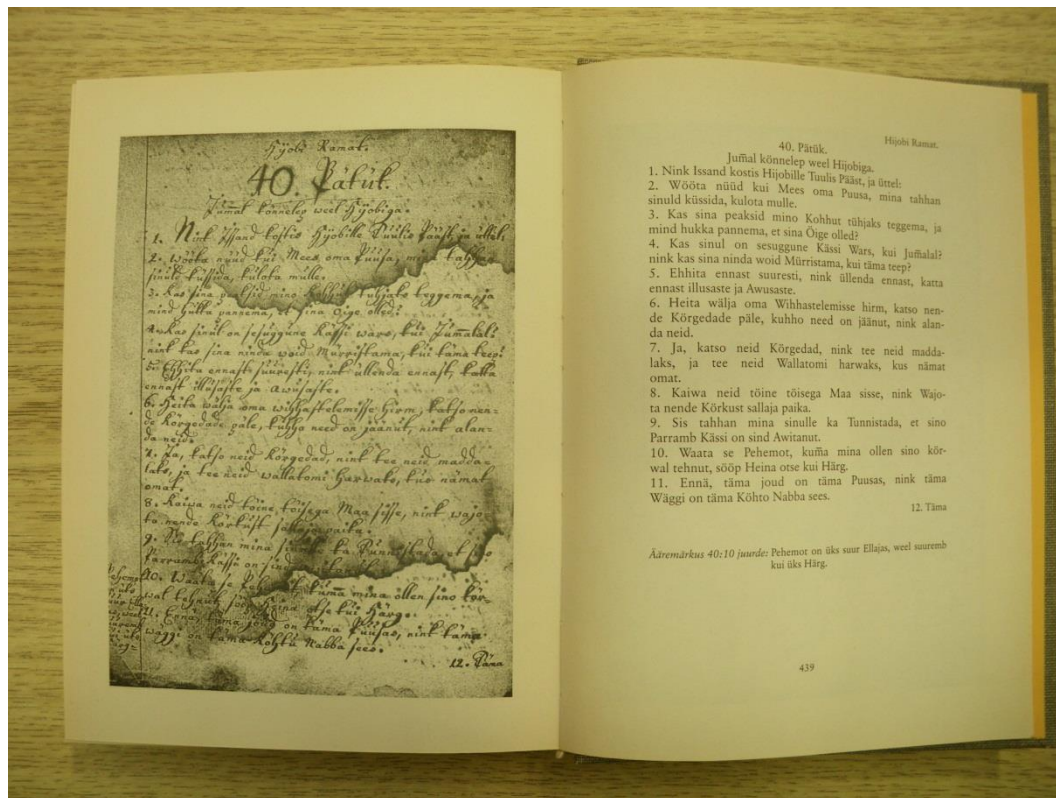 Hijobi Ramat.
40. Pätük.
Jumal könnelep weel Hijobiga.
1. Nink Issand kostis Hijobille Tuulis Pääst, ja üttel:
2. Wööta nüüd kui Mees oma Puusa, mina tahhan
sinuld küssida, kulota mulle.
3. Kas sina peaksid mino Kohhut tuhjaks teggema, ja
mind hukka pannema, et sina Öige olled?
4. Kas sinul on sesuggune Kässi wars, kui Jum̄alal?
nink kas sina ninda woid Mürristama, kui täma teep?
5. Ehhita ennast suuresti, nink üllenda ennast, katta
ennast illusaste ja Awusaste.
6. Heita wälja oma wihhastelemisse hirm, katso nen-
de Körgedade päle, kuhho need on jäänut, nink alan-
da neid.
7. Ja, katso neid Körgedad, nink tee neid madda-
laks, ja tee neid wallatomi Harwaks, kus nämat
omat.
8. Kaiwa neid töine töisega Maa sisse, nink wajo-
ta nende Körkust sallaja paika.
9. Sis tahhan mina sinulle ka Tunnistada, et sino
Parramb Kässi on sind
10. Waata se Pehemot, kum̄a mina ollen sino kör-
wal tehnut, sööp Heina otse kui Härg.
11. Ennä, täma joud on täma Puusas, nink täma
wäggi on täma Köhto Nabba sees.
12. Täma
Hijobi Ramat.
40. Pätük.
Jum̄al könnelep weel Hijobiga.
1. Nink Issand kostis Hijobille Tuulis Pääst, ja üttel:
2. Wööta nüüd kui Mees oma Puusa, mina tahhan
sinuld küssida, kulota mulle.
3. Kas sina peaksid mino Kohhut tühjaks teggema, ja
mind hukka pannema, et sina Öige olled?
4. Kas sinul on sesuggune Kässi Wars, kui Jum̄alal?
nink kas sina ninda woid Mürristama, kui täma teep?
5. Ehhita ennast suuresti, nink üllenda ennast, katta
ennast illusaste ja Awusaste.
6. Heita wälja oma Wihhastelemisse hirm, katso nen-
de Körgedade päle, kuhho need on jäänut, nink alan-
da neid.
7. Ja, katso neid Körgedad, nink tee neid madda-
laks, ja tee neid Wallatomi harwaks, kus nämat
omat.
8. Kaiwa neid töine töisega Maa sisse, nink Wajo-
ta nende Körkust sallaja paika.
9. Sis tahhan mina sinulle ka Tunnistada, et sino
Parramb Kässi on sind Awitanut.
10. Waata se Pehemot, kum̄a mina ollen sino kör-
wal tehnut, sööp Heina otse kui Härg.
11. Ennä, täma joud on täma Puusas, nink täma
Wäggi on täma Köhto Nabba sees.
12. Täma
Ääremärkus 40:10 juurde: Pehemot on üks suur Ellajas, weel suuremb
kui üks Härg.
439